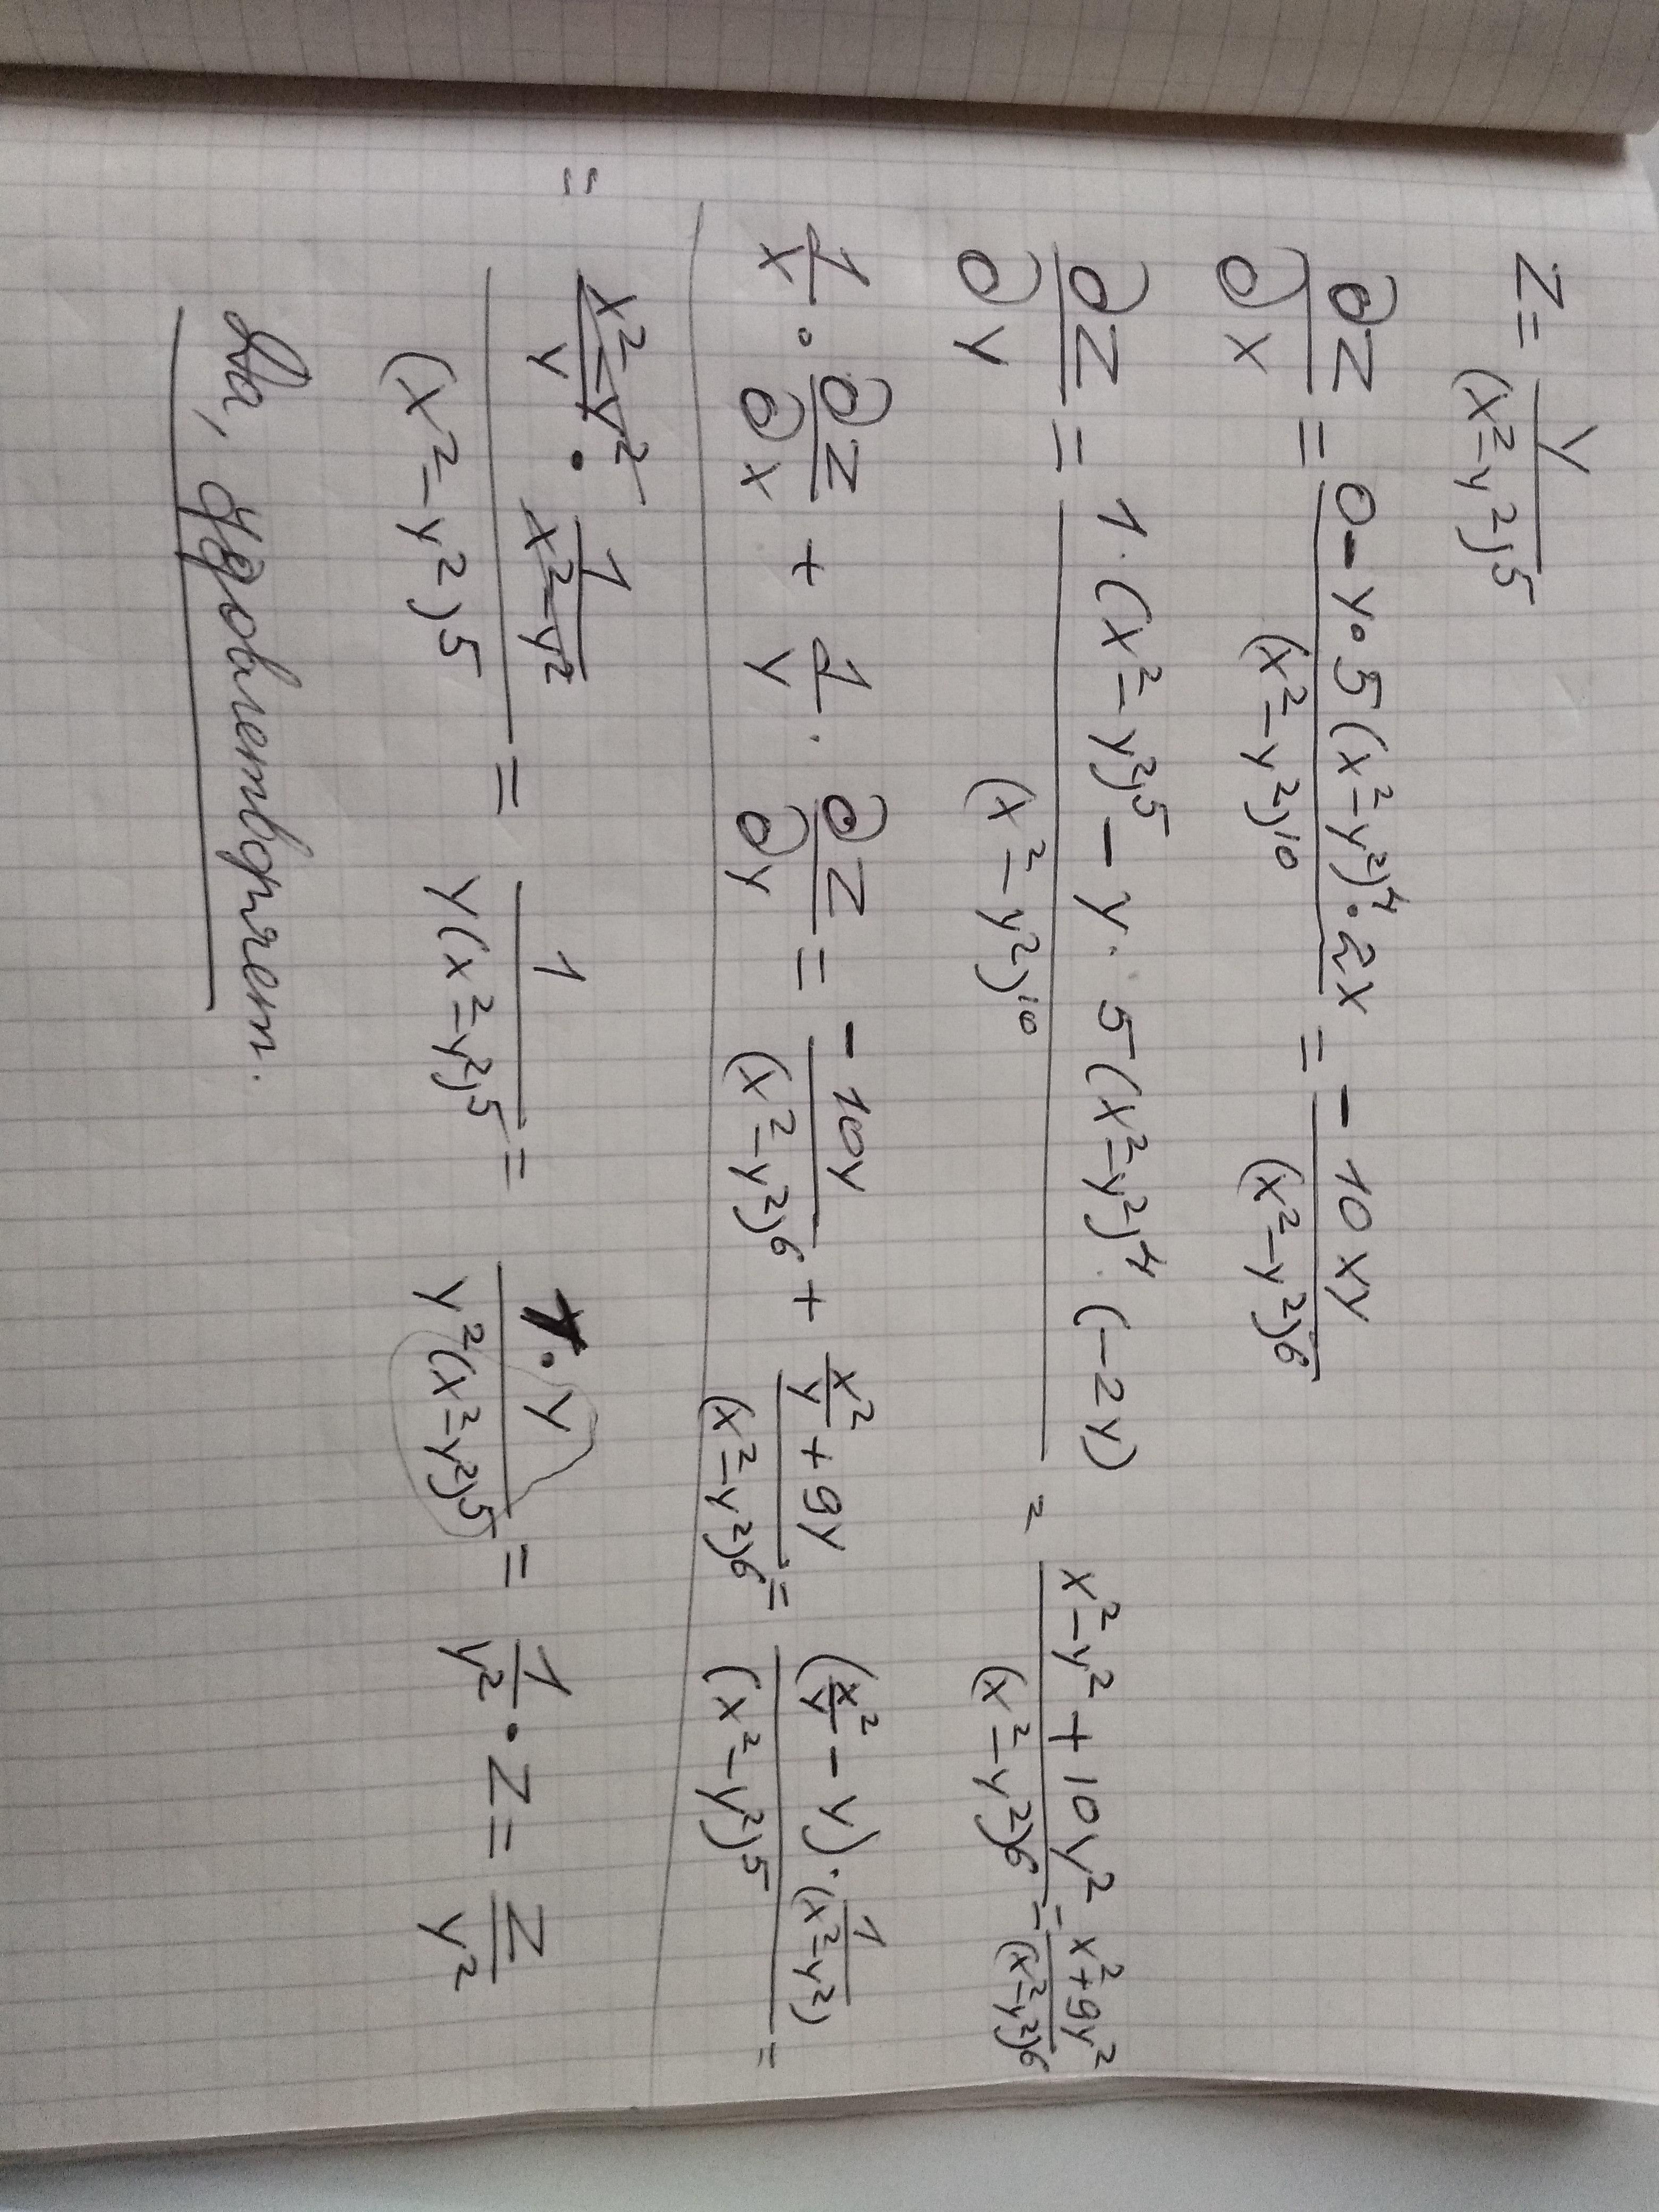 z = y/(x²-y²)⁵
∂z/∂x = (0 - y·5(x²-y²)⁴·2x)/(x²-y²)¹⁰ = -10xy/(x²-y²)⁶
∂z/∂y = (1·(x²-y²)⁵ - y·5(x²-y²)⁴·(-2y))/(x²-y²)¹⁰ = (x²-y²+10y²)/(x²-y²)⁶ = (x²+9y²)/(x²-y²)⁶
1/x · ∂z/∂x + 1/y · ∂z/∂y = -10y/(x²-y²)⁶ + (x²/y + 9y)/(x²-y²)⁶ = ((x²/y - y)·1/(x²-y²))/(x²-y²)⁵ =
= ((x²-y²)/y · 1/(x²-y²))/(x²-y²)⁵ = 1/(y(x²-y²)⁵) = (1·y)/(y²(x²-y²)⁵) = 1/y² · z = z/y²
Да, удовлетворяет.